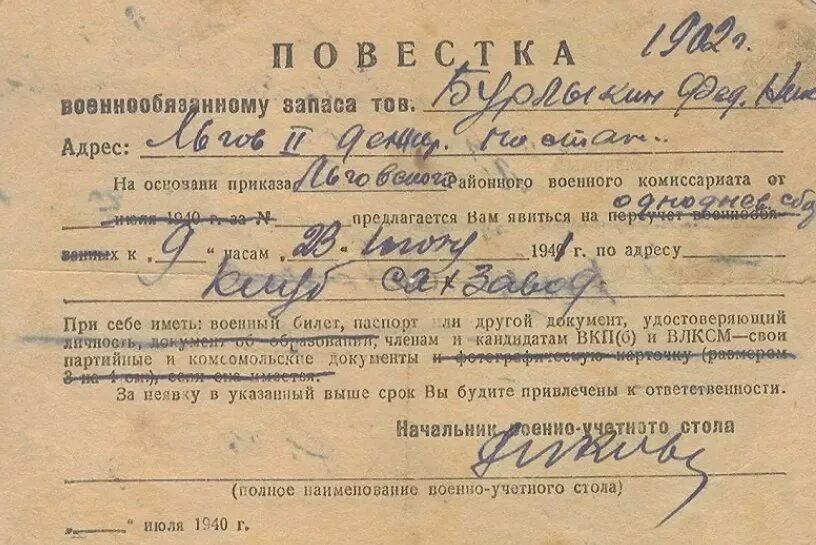 1902 г.
ПОВЕСТКА
военнообязанному запаса тов. Бурлыкин Фед. Ник
Адрес: Льгов II
На основани приказа Льговского районного военного комиссариата от
июля 1940 г. за № предлагается Вам явиться на переучет военнообя-
однодnев. сбор
занных к „9" часам „23" 1941 г. по адресу
клуб Завод
При себе иметь: военный билет, паспорт или другой документ, удостоверяющий
личность, документ об образовании, членам и кандидатам ВКП(б) и ВЛКСМ—свои
партийные и комсомольские документы и фотографическую карточку (размером
3 на 4 см), если она имеется.
За неявку в указанный выше срок Вы будите привлечены к ответственности.
Начальник военно-учетного стола
(полное наименование военно-учетного стола)
„ " июля 1940 г.